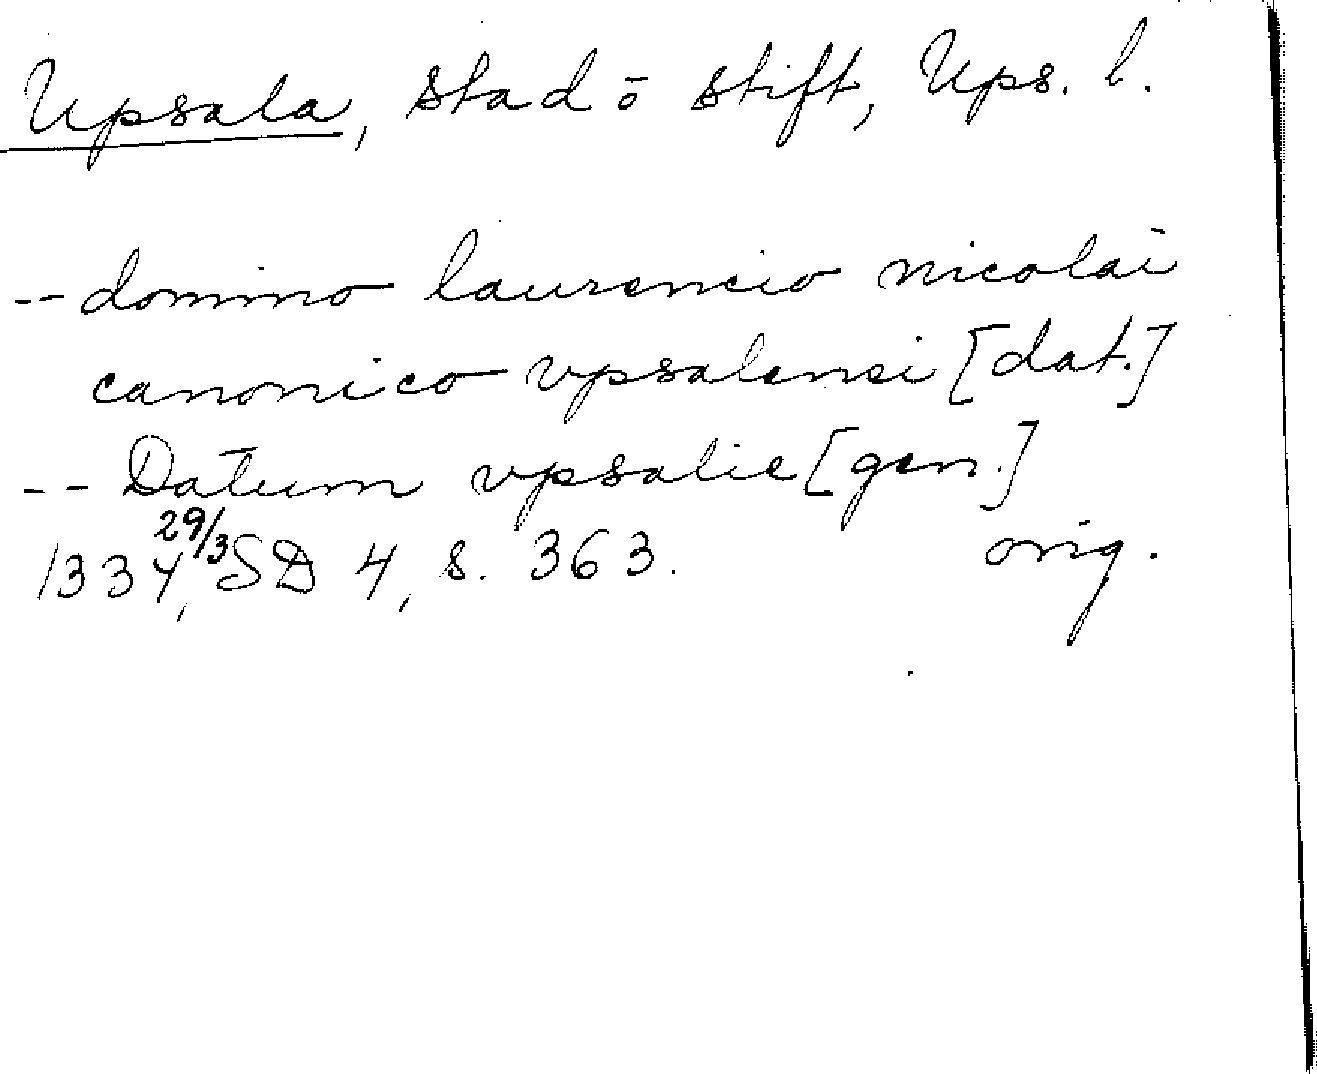 Upsala, stad ō stift, Ups. l.
-- domino laurencio nicolai
canonico vpsalensi [dat.]
-- Datum vpsalie [gen.]
1334 29/3, SD 4, s. 363. orig.